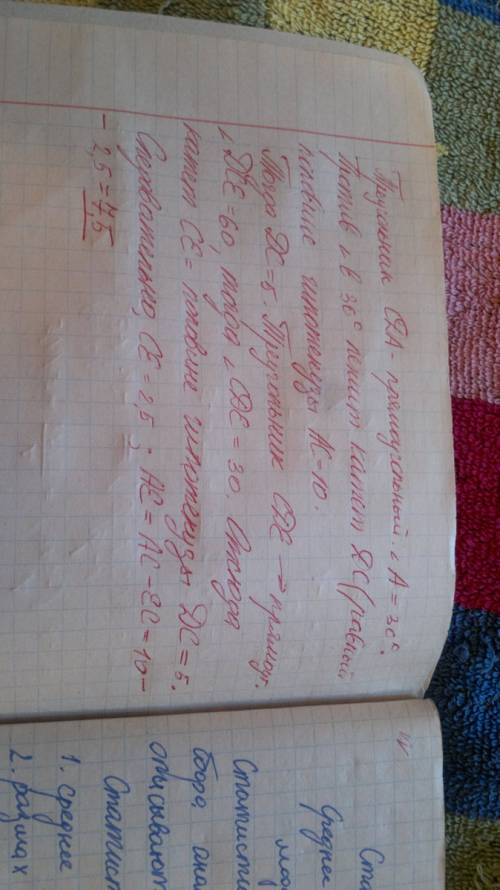 Треугольник CDA - прямоугольный. ∠A = 30°.
Против ∠ в 30° лежит катет DC (равный
половине гипотенузы AC = 10.
Тогда DC = 5. Треугольник CDE → прямоуг.
∠ DCE = 60, тогда ∠ CDE = 30. Отсюда
катет CE = половине гипотенузы DC = 5.
Следовательно, CE = 2,5 ; AE = AC - EC = 10 -
- 2,5 = 7,5
Ста
Среднее
Статисти
бора
описывают
Статист
1. среднее
2. размах